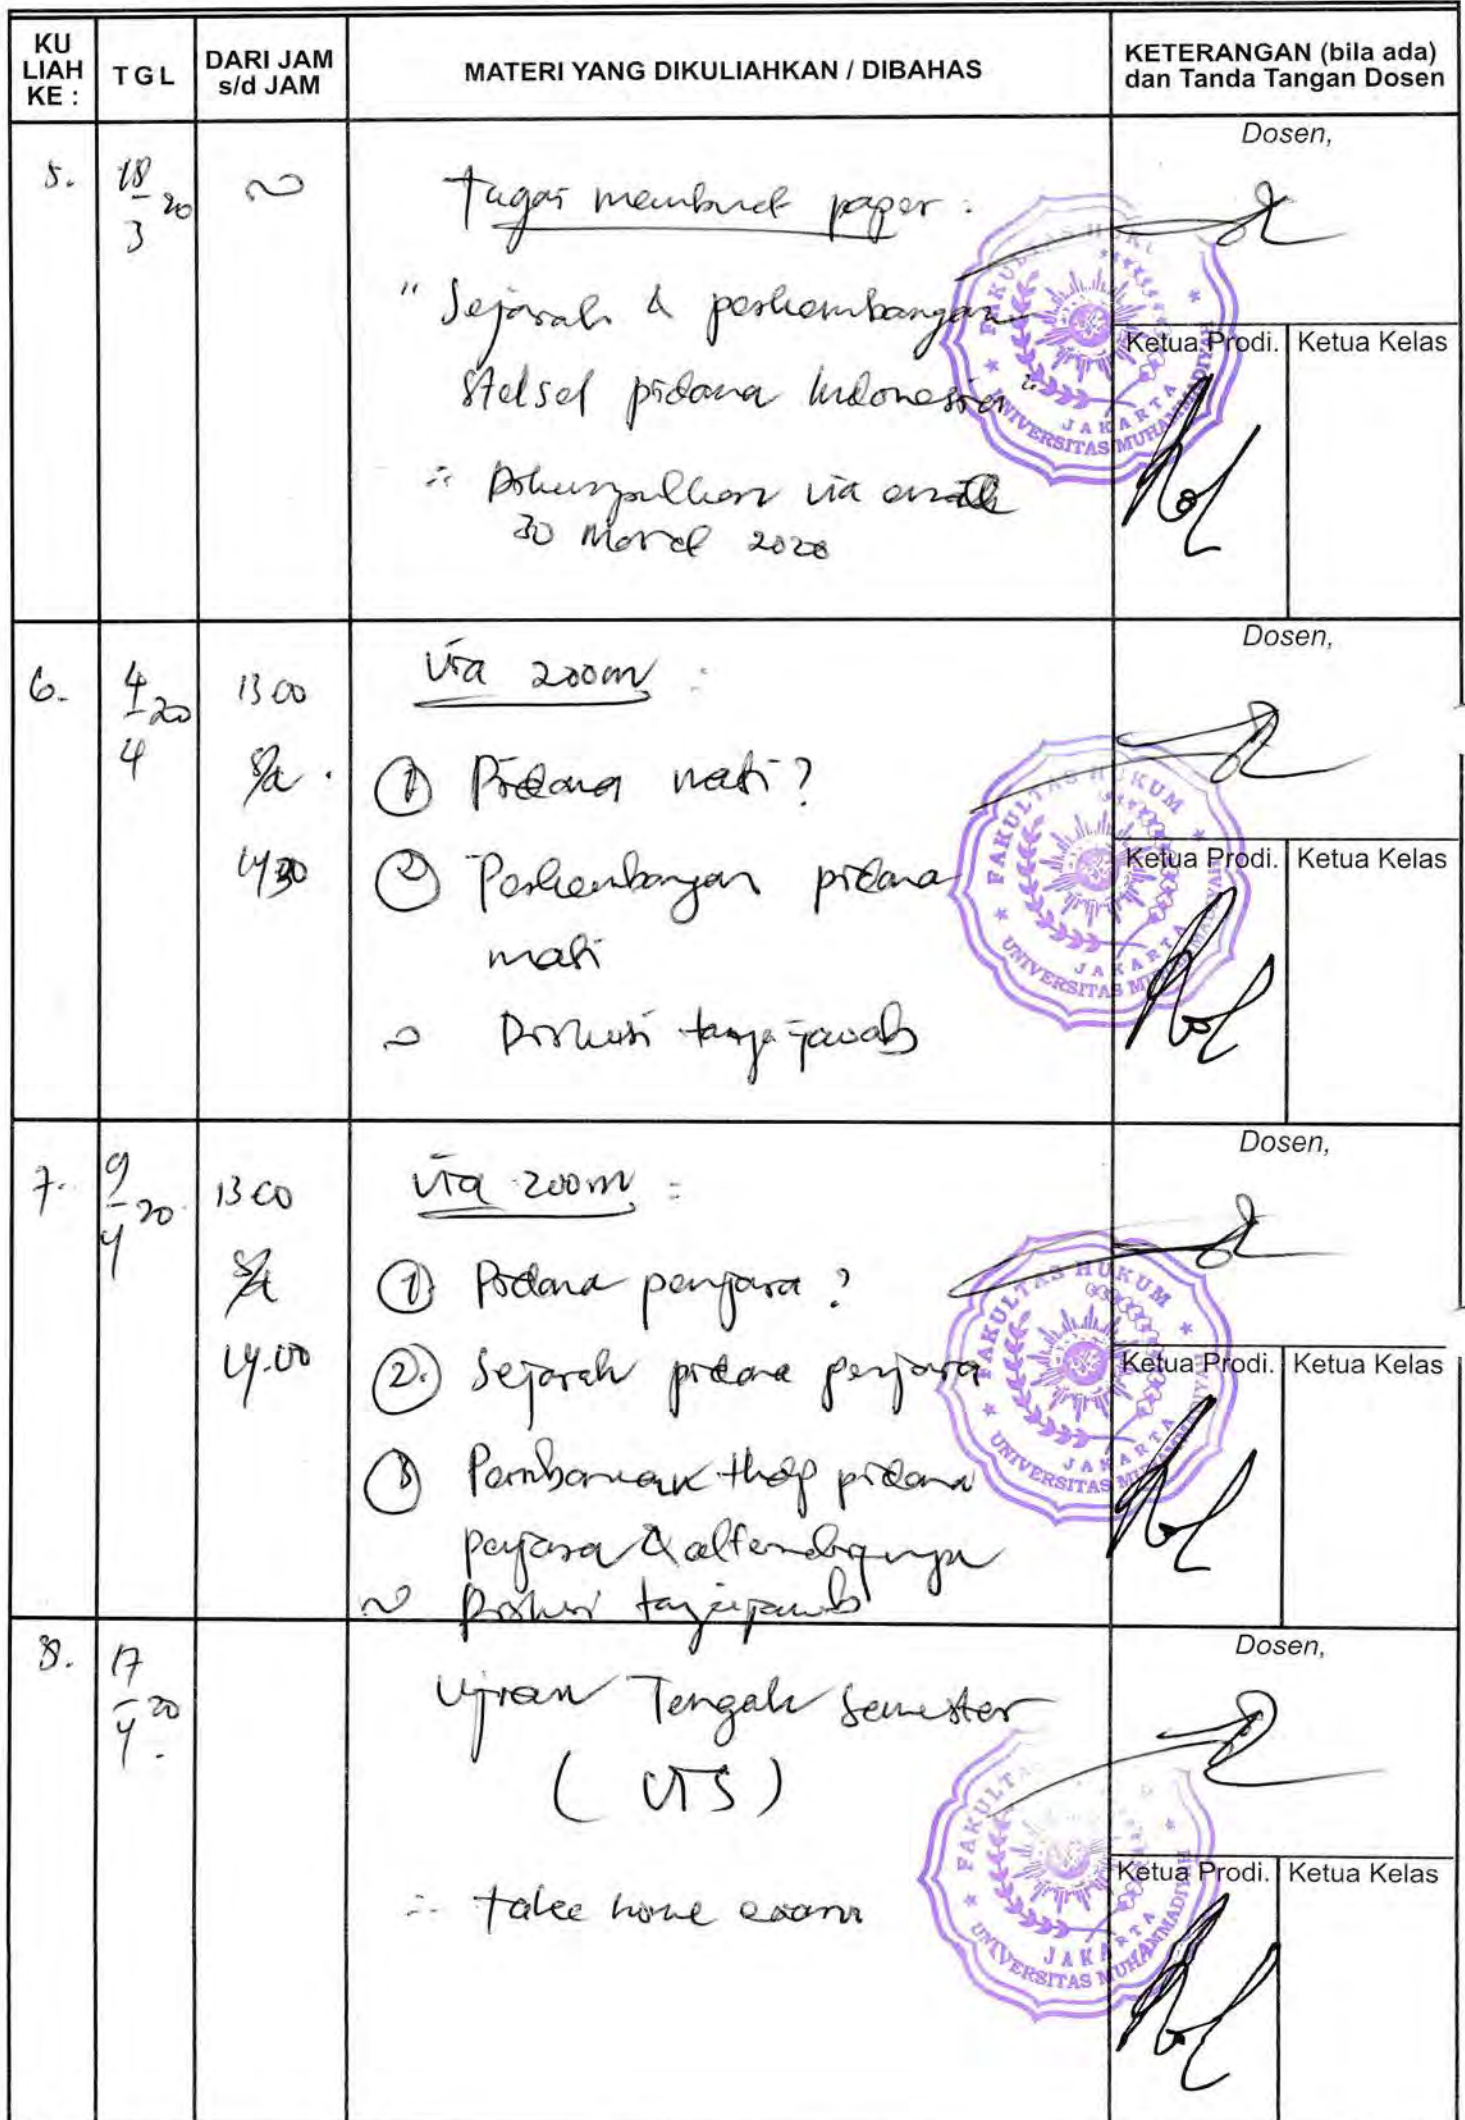 KU LIAH KE :
TGL
DARI JAM s/d JAM
MATERI YANG DIKULIAHKAN / DIBAHAS
KETERANGAN (bila ada) dan Tanda Tangan Dosen
5.
18/3 20
Tugas membuat paper :
" Sejarah & perkembangan
stelsel pidana Indonesia "
Dikumpulkan via email
30 Maret 2020
Dosen,
Ketua Prodi.
Ketua Kelas
FAKULTAS HUKUM
UNIVERSITAS MUHAMMADIYAH
JAKARTA
6.
4/4 20
13 00
s/d
14 30
Via zoom :
① Pidana mati?
② Perkembangan pidana
mati
Diskusi tanya jawab
Dosen,
Ketua Prodi.
Ketua Kelas
FAKULTAS HUKUM
UNIVERSITAS MUHAMMADIYAH
JAKARTA
7.
9/4 20
13 00
s/d
14.00
Via zoom :
① Pidana penjara ?
②. Sejarah pidana penjara
③ thdp pidana
penjara & alternatifnya
Diskusi tanya jawab
Dosen,
Ketua Prodi.
Ketua Kelas
FAKULTAS HUKUM
UNIVERSITAS MUHAMMADIYAH
JAKARTA
8.
17/4 20
Ujian Tengah Semester
( UTS )
take home exam
Dosen,
Ketua Prodi.
Ketua Kelas
FAKULTAS
UNIVERSITAS MUHAMMADIYAH
JAKARTA